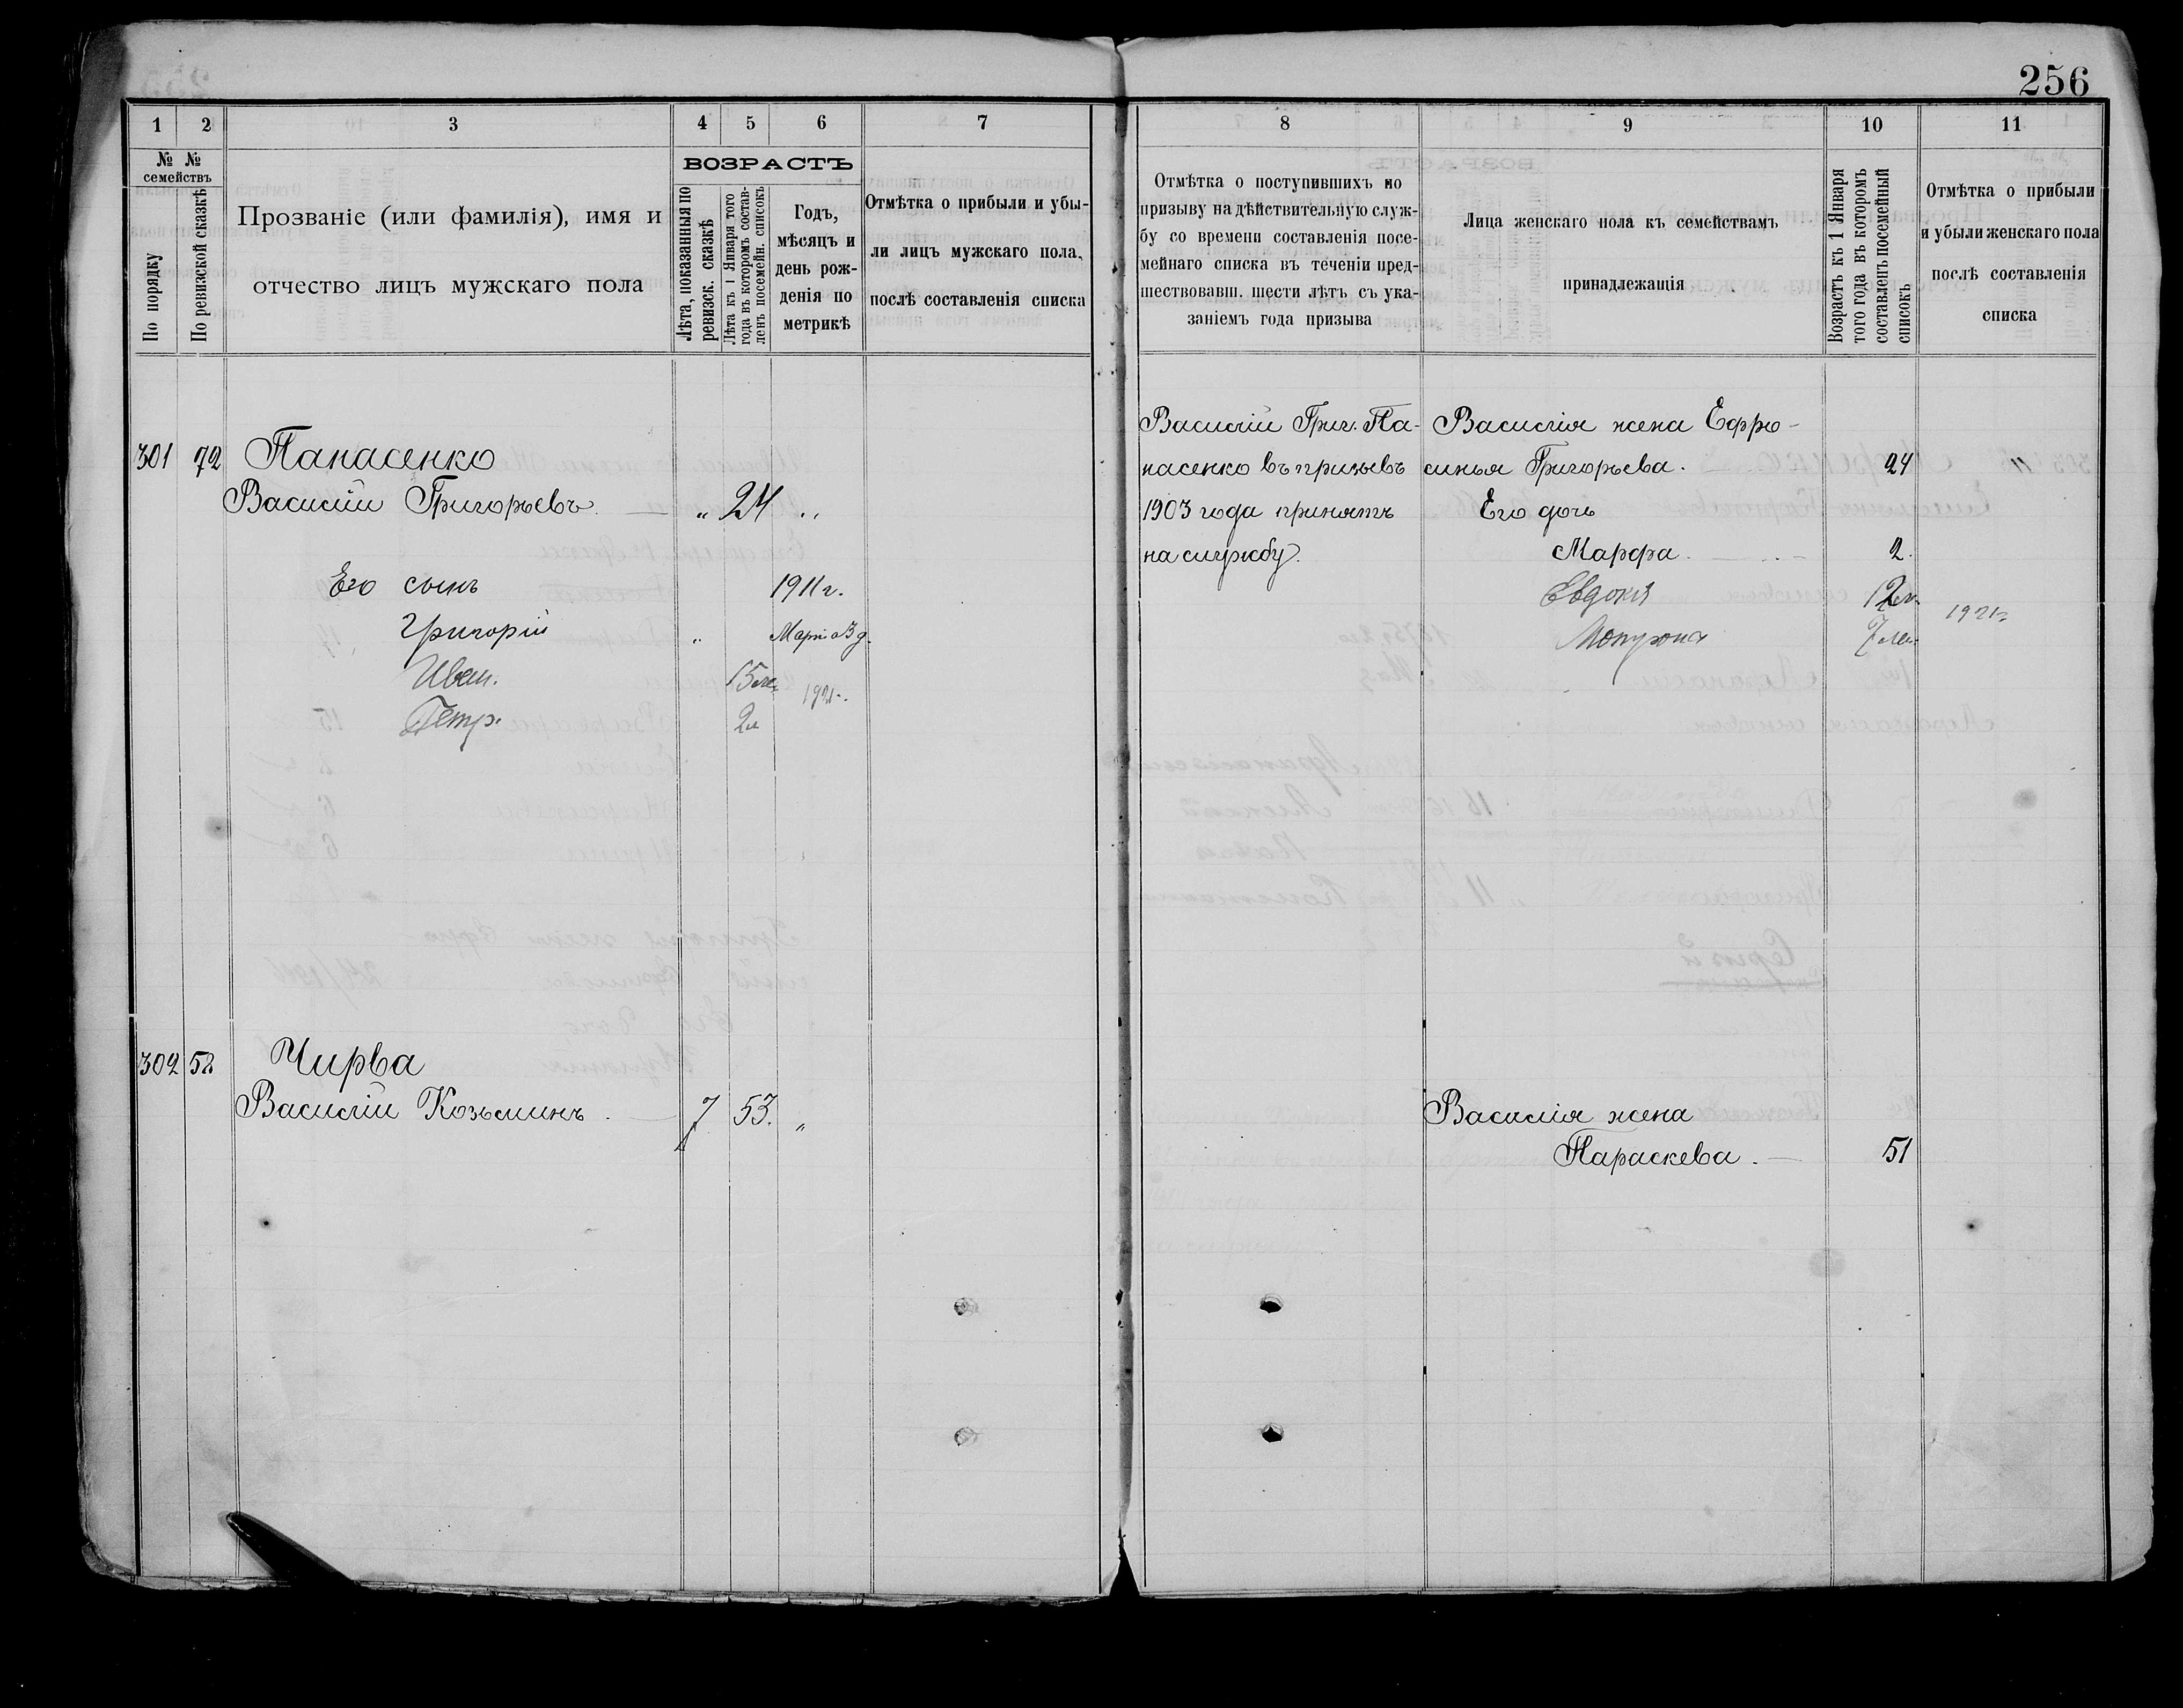 256
1 2 3 4 5 6 7
№ № семействъ
По порядку
По ревизской сказкѣ
Прозваніе (или фамилія), имя и
отчество лицъ мужскаго пола
ВОЗРАСТЪ
Лѣта, показанныя по
ревизск. сказкѣ
Лѣта къ 1 Января того
года въ которомъ состав-
ленъ посемейн. списокъ
Годъ,
мѣсяцъ и
день рож-
денія по
метрикѣ
Отмѣтка о прибыли и убы-
ли лицъ мужскаго пола,
послѣ составленія списка
301 72 Панасенко
Василій Григорьевъ „ 24 „
Его сынъ 1911 г.
Григорій „ Марта 3 д.
Иван. 15 л. 1921 г.
Петр. 2 л
302 58 Чирва
Василій Козьминъ 7 53. „
8 9 10 11
Отмѣтка о поступившихъ по
призыву на дѣйствительную служ-
бу со времени составленія посе-
мейнаго списка въ теченіи пред-
шествовавш. шести лѣтъ съ ука-
заніемъ года призыва
Лица женскаго пола къ семействамъ
принадлежащія
Возрастъ къ 1 Января
того года въ которомъ
составленъ посемейный
списокъ
Отмѣтка о прибыли
и убыли женскаго пола
послѣ составленія
списка
Василій Григ. Па-
насенко въ призывъ
1903 года принятъ
на службу.
Василія жена Ефро-
синья Григорьева. 24
Его дочь
Марфа. 2.
Евдокія 12 л. 1921 г.
Мотрона 7 л.
Василія жена
Параскева. 51